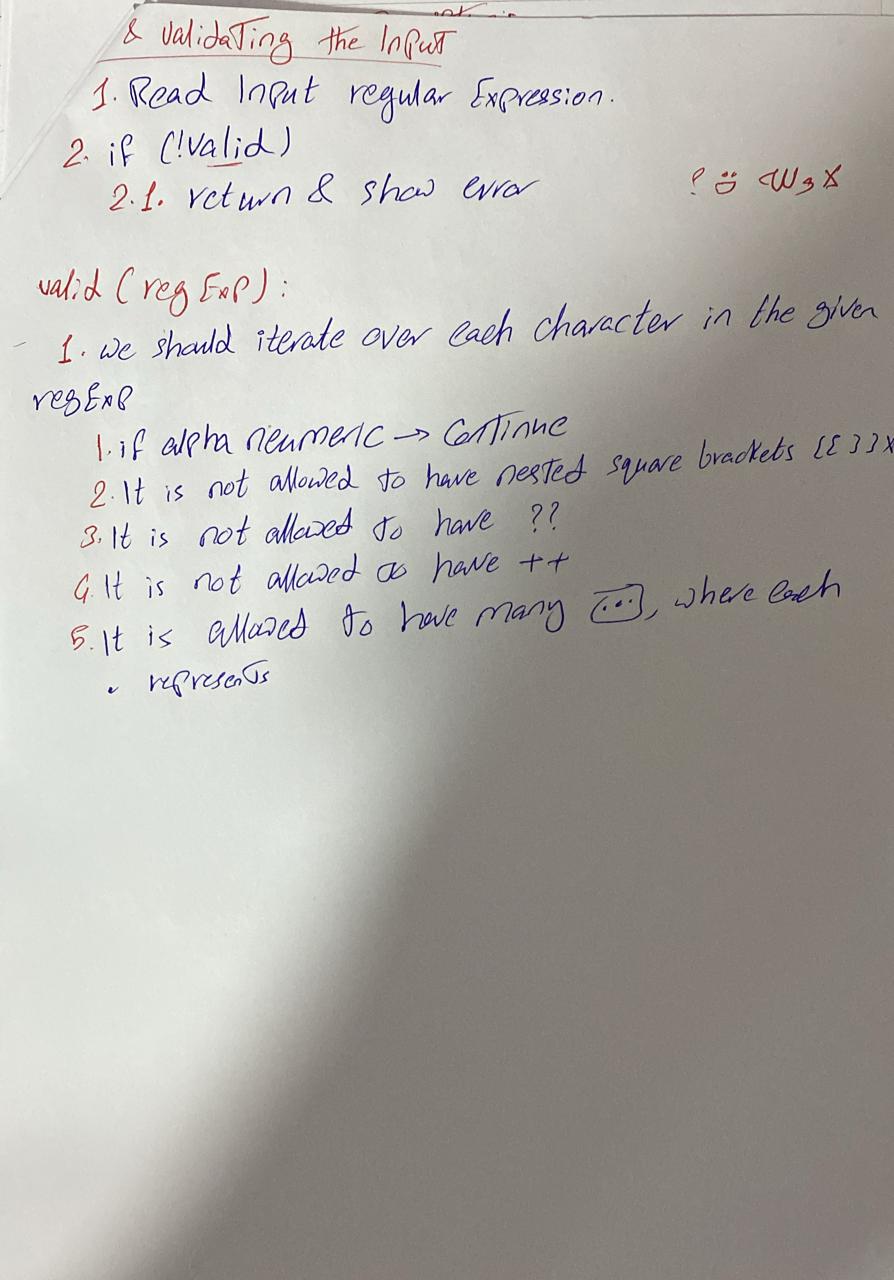 & Validating the Input
1. Read Input regular Expression.
2. if (!valid)
2.1. return & show error
valid (regExp):
1. we should iterate over each character in the given
regExp
1. if alpha neumeric → Continue
2. It is not allowed to have nested square brackets [[]]x
3. It is not allowed to have ??
4. It is not allowed to have ++
5. It is allowed to have many [...], where each
. represents